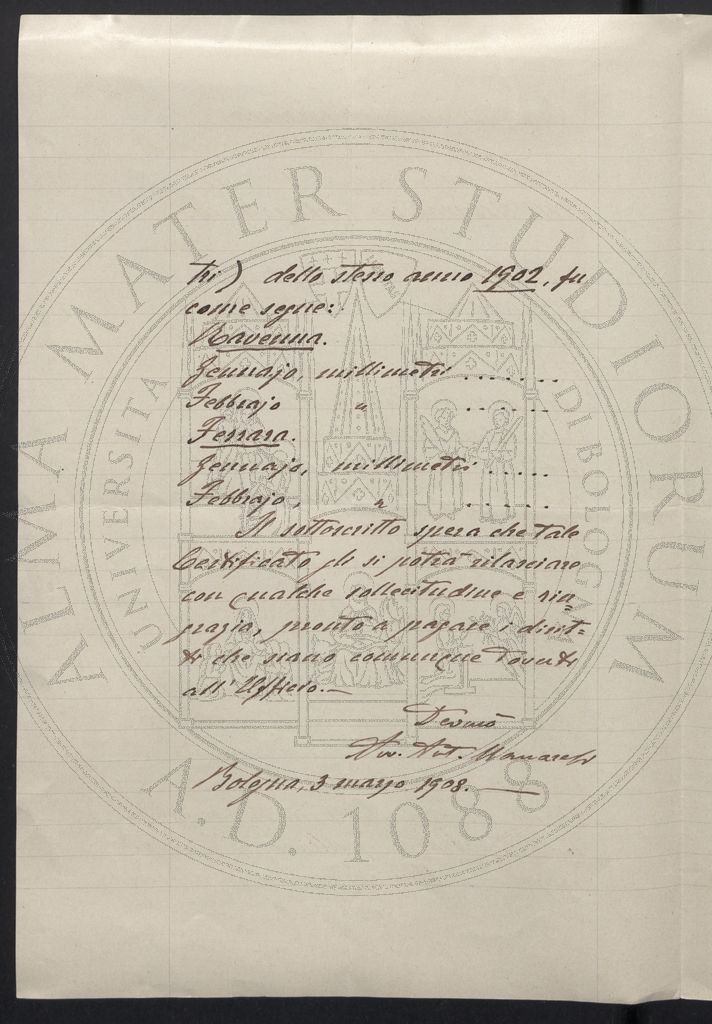 ALMA MATER STUDIORUM
UNIVERSITA DI BOLOGNA
A.D. 1088
tri) dello stesso anno 1902, fu
come segue:
Ravenna.
Gennajo, millimetri .......
Febbrajo " ......
Ferrara.
Gennajo, millimetri .....
Febbrajo, " .....
Il sottoscritto spera che tale
Certificato gli si potrà rilasciare
con qualche sollecitudine e rin=
grazia, pronto a pagare i dirit=
ti che siano comunque dovuti
all'Ufficio.—
Devmo
Avv. Ant.
Bologna, 3 marzo 1908.—